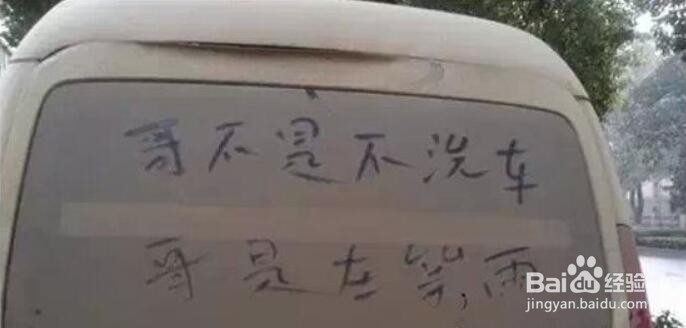 哥不是不洗车
哥是在等,雨
Baidu 经验
jingyan.baidu.com